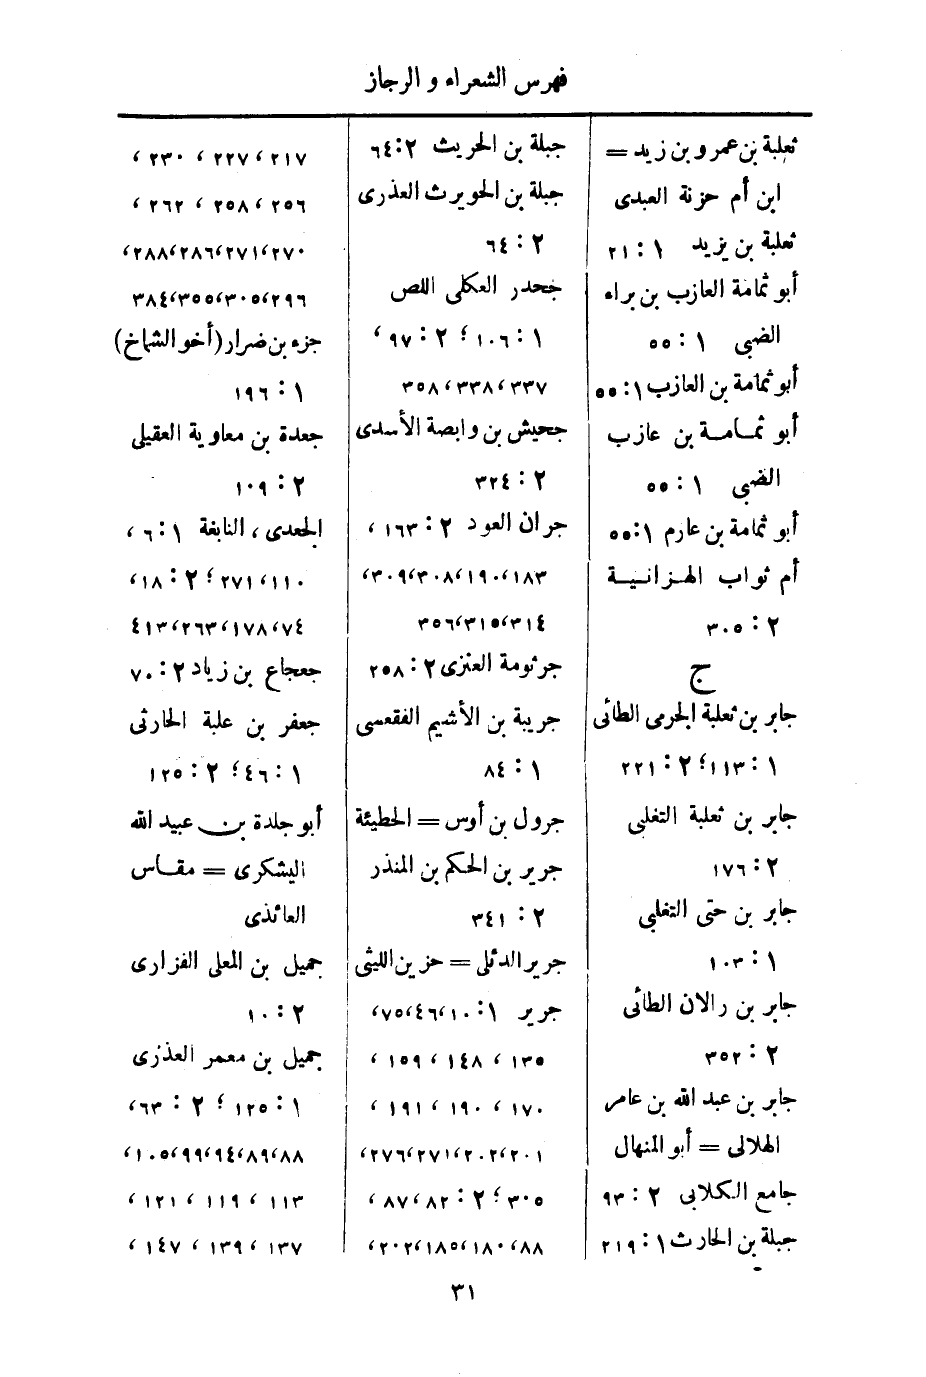 فهرس الشعراء و الرجاز
ثعلبة بن عمرو بن زيد =
ابن أم حزنة العبدى
ثعلبة بن يزيد ١ : ٢١
أبو ثمامة العازب بن براء
الضبى ١ : ٥٥
أبو ثمامة بن العازب ١ : ٥٥
أبو ثمامة بن عازب
الضبى ١ : ٥٥
أبو ثمامة بن عارم ١ : ٥٥
أم ثواب الهزانية
٢ : ٣٠٥
ج
جابر بن ثعلبة الجرمى الطائى
١ : ١١٣؛ ٢ : ٢٢١
جابر بن ثعلبة التغلبى
٢ : ١٧٦
جابر بن حتى التغلبى
١ : ١٠٣
جابر بن رالان الطائى
٢ : ٣٥٢
جابر بن عبد الله بن عامر
الهلالى = أبو المنهال
جامع الكلابى ٢ : ٩٣
جبلة بن الحارث ١ : ٢١٩
جبلة بن الحريث ٢ : ٦٤
جبلة بن الحويرث العذرى
٢ : ٦٤
جحدر العكلى اللص
١ : ١٠٦؛ ٢ : ٩٧،
٣٣٧،٣٣٨،٣٥٨
جحيش بن وابصة الأسدى
٢ : ٣٢٤
جران العود ٢ : ١٦٣،
١٨٣،١٩٠،٣٠٨،٣٠٩،
٣١٤،٣١٥،٣٥٦
جرثومة العنزى ٢ : ٢٥٨
جريبة بن الأشيم الفقعسى
١ : ٨٤
جرول بن أوس = الحطيئة
جرير بن الحكم بن المنذر
٢ : ٣٤١
جرير الدئلى = حزين الليثى
جرير ١ : ١٠،٤٦،٧٥،
١٣٥، ١٤٨، ١٥٩،
١٧٠، ١٩٠، ١٩١،
٢٠١،٢٠٢،٢٧١،٢٧٦،
٣٠٥؛ ٢ : ٨٢،٨٧،
٨٨،١٨٠،١٨٥،٢٠٢،
٢١٧،٢٢٧، ٢٣٠،
٢٥٦،٢٥٨، ٢٦٢،
٢٧٠،٢٧١،٢٨٦،٢٨٨،
٢٩٦،٣٠٥،٣٥٥،٣٨٤
جزء بن ضرار (أخو الشماخ)
١ : ١٩٦
جعدة بن معاوية العقيلى
٢ : ١٠٩
الجعدى، النابغة ١ : ٦،
١١٠،٢٧١؛ ٢ : ١٨،
٧٤،١٧٨،٢٦٣،٤١٣
جعجاع بن زياد ٢ : ٧٠
جعفر بن علبة الحارثى
١ : ٤٦؛ ٢ : ١٢٥
أبو جلدة بن عبيد الله
اليشكرى = مقاس
العائذى
جميل بن المعلى الفزارى
٢ : ١٠
جميل بن معمر العذرى
١ : ١٢٥؛ ٢ : ٦٣،
٨٨،٨٩،٩٤،٩٩،١٠٥،
١١٣، ١١٩، ١٢١،
١٣٧، ١٣٩، ١٤٧،
٣١